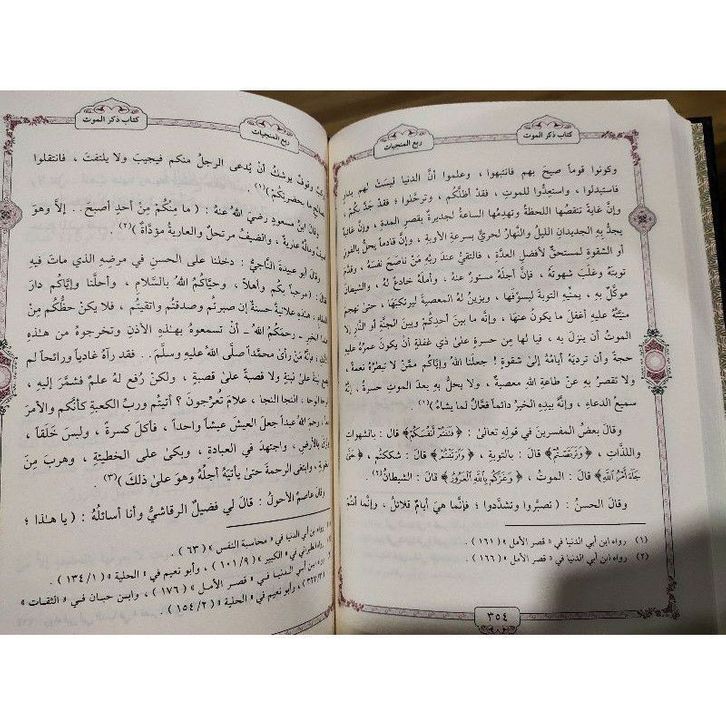 كتاب ذكر الموت
ربع المنجيات
وكونوا قوماً صيح بهم فانتبهوا ، وعلموا أنَّ الدنيا ليسَتْ لهم بدار
فاستبدلوا ، واستعدُّوا للموتِ ، فقدْ أظلَّكُم ، وترحَّلوا ؛ فقدْ جَدَّ بكُم ،
وإنَّ غايةً تنقصُها اللحظةُ وتهدِمُها الساعةُ لجديرةٌ بقصرِ المدةِ ، وإنَّ غائباً
يجدُّ بهِ الجديدانِ الليلُ والنَّهارُ لحريٌّ بسرعةِ الأوبةِ ، وإنَّ قادماً يحلُّ بالفوزِ
أو الشقوةِ لمستحقٌّ لأفضلِ العدَّةِ ، فالتقيُّ عندَ ربِّهِ مَنْ ناصحَ نفسَهُ ، وقدَّمَ
توبتَهُ وغلَبَ شهوتَهُ ، فإنَّ أجلَهُ مستورٌ عنهُ ، وأملَهُ خادعٌ لهُ ، والشيطانَ
موكَّلٌ بهِ ، يمنِّيهِ التوبةَ ليسوِّفَها ، ويزينُ لهُ المعصيةَ ليرتكبَها ، حتى تهجمَ
منيَّتُهُ عليهِ أغفلَ ما يكونُ عنها ، وإنَّه ما بينَ أحدِكُمْ وبينَ الجنَّةِ أوِ النَّارِ إلا
الموتُ أن ينزلَ بهِ ، فيا لها مِنْ حسرةٍ على ذي غفلةٍ أنْ يكونَ عمرُهُ عليهِ
حجةً وأن ترديَهُ أيامُهُ إلى شقوةٍ ! جعلَنا اللهُ وإيَّاكُم ممَّنْ لا تبطرُهُ نعمةٌ ،
ولا تقصرُ بهِ عنْ طاعةِ اللهِ معصيةٌ ، ولا يحلُّ بهِ بعدَ الموتِ حسرةٌ ، إنَّهُ
سميعُ الدعاءِ ، وإنَّهُ بيدِهِ الخيرُ دائماً فعَّالٌ لما يشاءُ(١)
وقالَ بعضُ المفسرينَ في قولِهِ تعالىٰ : ﴿ فَتَنتُمْ أَنفُسَكُمْ ﴾ قالَ : بالشهواتِ
واللذَّاتِ ، ﴿ وَتَرَبَّصْتُمْ ﴾ قالَ : بالتوبةِ ، ﴿ وَٱرْتَبْتُمْ ﴾ قالَ : شككتُم ، ﴿ حَتَّىٰ
جَآءَ أَمْرُ ٱللَّهِ ﴾ قالَ : الموتُ ، ﴿ وَغَرَّكُم بِٱللَّهِ ٱلْغَرُورُ ﴾ قالَ : الشيطانُ(٢)
وقالَ الحسنُ : تصبَّروا وتشدَّدوا ؛ فإنَّما هيَ أيامٌ قلائلُ ، وإنَّما أنتُمْ
(١) رواه ابن أبي الدنيا في « قصر الأمل » ( ١٦١ ) .
(٢) رواه ابن أبي الدنيا في « قصر الأمل » ( ١٦٦ ) .
٣٥٤
كتاب ذكر الموت
ربع المنجيات
وقوفٌ يوشكُ أنْ يُدعى الرجلُ منكم فيجيبَ ولا يلتفتَ ، فانتقلوا
بحضرتِكُمْ(١)
وقالَ ابنُ مسعودٍ رضيَ اللهُ عنهُ : ( ما مِنْكُمْ مِنْ أحدٍ أصبحَ . . إلا وهوَ
ضيفٌ ومالُهُ عاريةٌ ، والضيفُ مرتحلٌ والعاريةُ مؤدَّاةٌ )(٢)
وقالَ أبو عبيدةَ الناجيُّ : دخلنا على الحسنِ في مرضِهِ الذي ماتَ فيهِ
: مرحباً بكم وأهلاً ، وحيَّاكُمُ اللهُ بالسَّلامِ ، وأحلَّنا وإيَّاكُم دارَ
علانيةٌ حسنةٌ إن صبرتُم وصدقتُم واتقيتُم ، فلا يكنْ حظُّكُم مِنْ
هذا الخبرِ ـ رحمَكُمُ اللهُ ـ أنْ تسمعوهُ بهذهِ الأذنِ وتخرجوهُ من هذهِ
، فإنَّهُ مَنْ رأى محمَّداً صلَّى اللهُ عليهِ وسلَّمَ . . فقد رآهُ غادياً ورائحاً لم
لبنةً على لبنةٍ ولا قصبةً على قصبةٍ ، ولكنْ رُفعَ لهُ علمٌ فشمَّرَ إليهِ ،
الوحا ، النجا النجا ، علامَ تُعرِّجونَ ؟ أتيتُم وربِّ الكعبةِ كأنَّكم والأمرَ
، رحمَ اللهُ عبداً جعلَ العيشَ عيشاً واحداً ، فأكلَ كسرةً ، ولبسَ خَلَقاً ،
بالأرضِ ، واجتهدَ في العبادةِ ، وبكىٰ على الخطيئةِ ، وهربَ مِنَ
، وابتغى الرحمةَ حتىٰ يأتيَهُ أجلُهُ وهوَ علىٰ ذلكَ )(٣)
وقالَ عاصمٌ الأحولُ : قالَ لي فضيلٌ الرقاشيُّ وأنا أسائلُهُ : ( يا هذا ؛
رواه ابن أبي الدنيا في « محاسبة النفس » ( ٦٣ ) .
رواه الطبراني في « الكبير » ( ١٠١/٩ ) ، وأبو نعيم في « الحلية » ( ١٣٤/١ ) .
رواه ابن أبي الدنيا في « قصر الأمل » ( ١٧٦ ) ، وابن حبان في « الثقات »
، وأبو نعيم في « الحلية » ( ١٥٤/٢ ) .